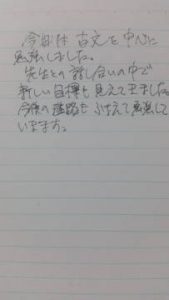 今日は古文を中心に
勉強しました。
先生との話し合いの中で
新しい目標も見えてきました。
今後の進路もふまえて勉強して
いきます。